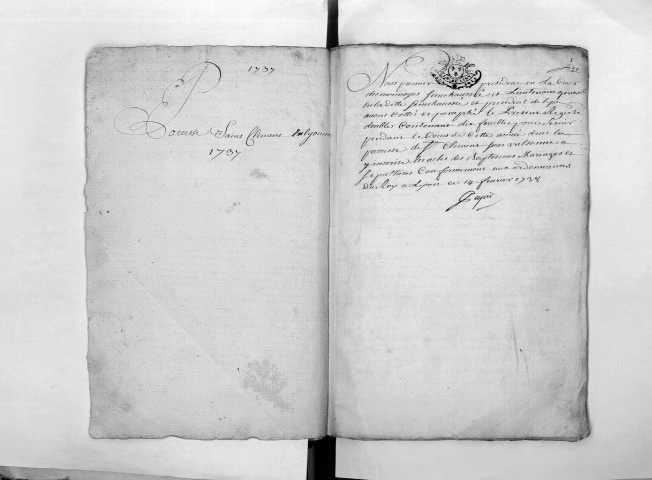 1737
Paroisse Saint Clement Valsonne
1737
Nous premier president en La Cour
des monnoyes senechaussée et Lieutenant general
en la ditte senechaussée et president de Lyon
avons Cotté et paraphé le Present Registre
double Contenant dix feuilles pour servir
pendant le Cours de Cette année dans la
paroisse de St Clement sous valsonne a
y inscrire les actes des Baptesmes Mariages et
Sepultures Conformement aux ordonnances
Du Roy a Lyon ce 14 fevrier 1738